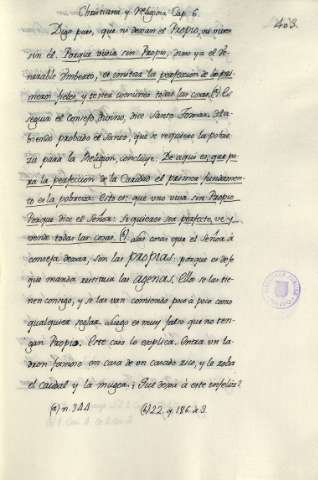 Christiana y Religiosa Cap. 6.
403.
Digo pues, que ni dexan el Propio, ni viven
sin él. Porque vivir sin Propio, dixo ya el Ve-
nerable Umberto, es imitar la perfeccion de los pri-
meros fieles, y tener comunes todas las cosas. (a) Es
seguir el consejo Divino, dice Santo Tomas. Ha-
biendo probado el Santo, que se requiere la pobre-
za para la Religion, concluye. De aqui es, que pa-
ra la perfeccion de la Caridad el primer fundamen-
to es la pobreza. Esto es: que uno viva sin Propio.
Porque dice el Señor: si quieres ser perfecto, ve, y
vende todas las cosas. (b) las cosas que el Señor
aconseja dexar, son las propias: porque es de fe
que manda restituir las agenas. Ellos se las tie-
nen consigo, y se las van comiendo poco à poco como
qualquiera seglar. Luego es muy falso que no ten-
gan Propio. Este caso lo explica. Entra un la-
dron famoso en casa de un casado rico, y le roba
el caudal y la muger. ¿Qué dexa à este infeliz?
(a) n. 344
(b) 22. q. 186. a. 3.